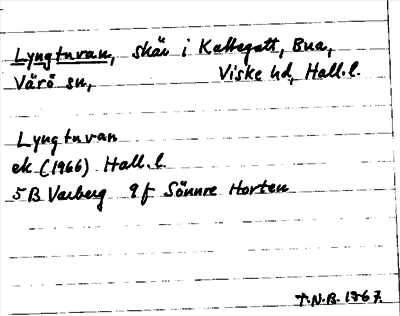 Lyngtuvan, skär i Kattegatt, Bua,
Värö sn, Viske hd, Hall. l.
Lyngtuvan
ek (1966) Hall. l.
5B Varberg 9f Sönnre Horten
T.N.B. 1967.